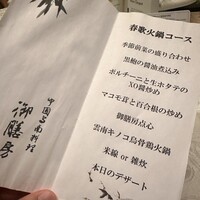 春歌火鍋コース
季節前菜の盛り合わせ
黒鮑の醤油煮込み
ポルチーニと生ホタテの
XO醤炒め
マコモ茸と百合根の炒め
御膳房点心
雲南キノコ烏骨鶏火鍋
米線 or 雑炊
本日のデザート
中国雲南料理
御膳房